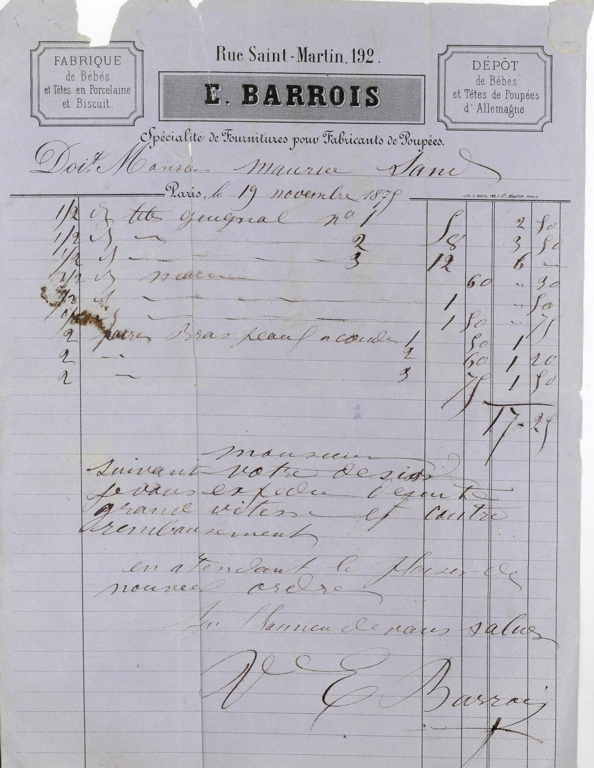 FABRIQUE
de Bébés
et Têtes en Porcelaine
et Biscuit.
Rue Saint-Martin, 192.
E. BARROIS
DÉPÔT
de Bébés
et Têtes de Poupées
d'Allemagne
Spécialité de Fournitures pour Fabricants de Poupées.
Doit Monsieur Maurice Sand
Paris, le 19 novembre 1875
1/2 d tête guignol no 1 5 2 50
1/2 d — 2 8 3 50
1/2 d — 3 12 6 —
1/2 d 60 " 30
1/2 d — 1 " 50
1/2 d — 1 50 " 75
2 paires Bras peau a coude 1 50 1
2 — 2 60 1 20
2 — 3 75 1 50
17-25
monsieur
suivant votre desir
je vous expedie
grande vitesse et contre
remboursement
en attendant le plaisir de
nouvel ordre
J'ai l'honneur de vous saluer
Ve E Barrois